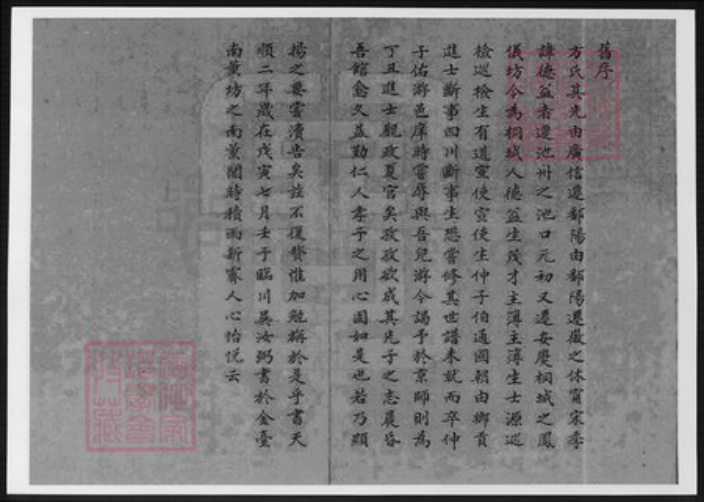 舊序
方氏其先由廣信遷鄱陽由鄱陽遷徽之休寧宋季
諱德益者遷池州之池口元初又遷安慶桐城之鳳
儀坊今為桐城人德益生茂才主薄主薄生士源巡
檢巡檢生有道宣使宣使生仲子伯通國朝由鄉貢
進士斷事四川斷事生懋嘗修其世譜未就而卒仲
子佑游邑庠時嘗辱與吾兒游今謁予於京師則為
丁丑進士觀政夏官矣孜孜欲成其先子之志晨昏
吾館愈久益勤仁人孝子之用心固如是也若乃顯
揚之要嘗瀆告矣茲不復贅惟加勉旃於是乎書天
順二年歲在戊寅七月壬子臨川吳汝弼書於金臺
南薰坊之南薰閣時積雨新霽人心怡悅云